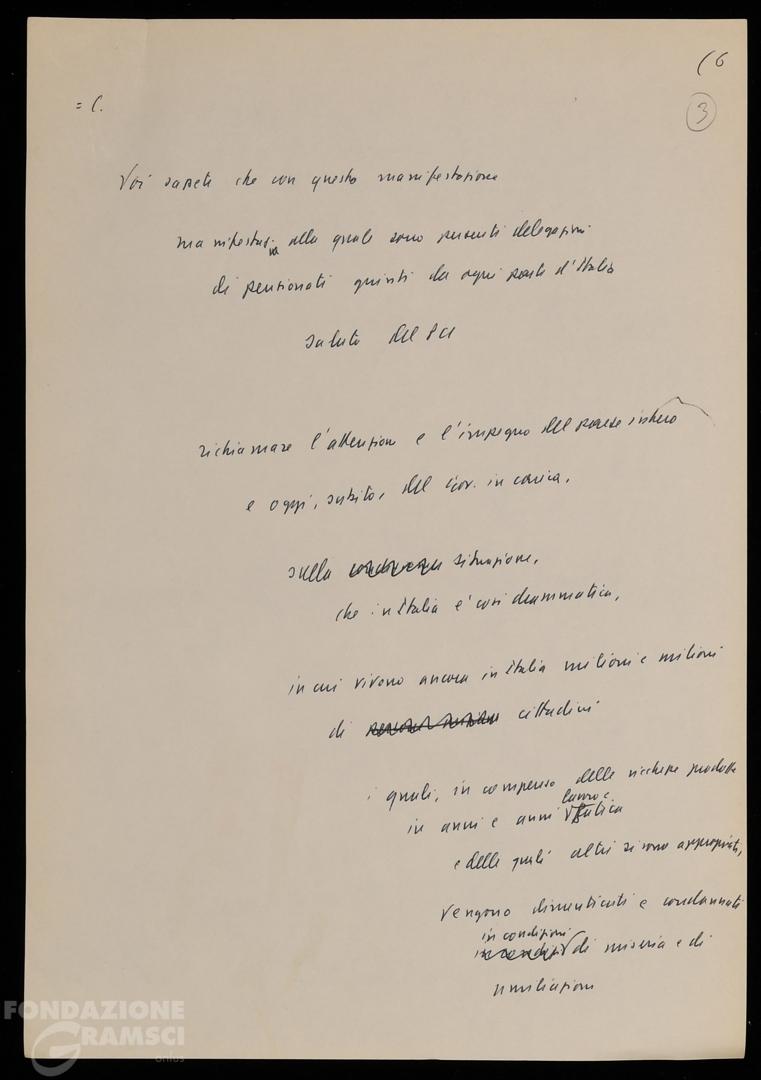 (6
3
= C.
Voi sapete che con questa manifestazione
manifestaz. alla quale sono presenti delegazioni
di pensionati giunti da ogni parte d'Italia
saluto del PCI
richiamare l'attenzione e l'impegno del paese intero
e oggi, subito, del Gov. in carica,
sulla situazione,
che in Italia è così drammatica,
in cui vivono ancora in Italia milioni e milioni
di cittadini
i quali, in compenso delle ricchezze prodotte
in anni e anni lavoro e fatica
e delle quali altri si sono appropriati,
vengono dimenticati e condannati
in condizioni
di miseria e di
umiliazioni
FONDAZIONE
GRAMSCI
onlus